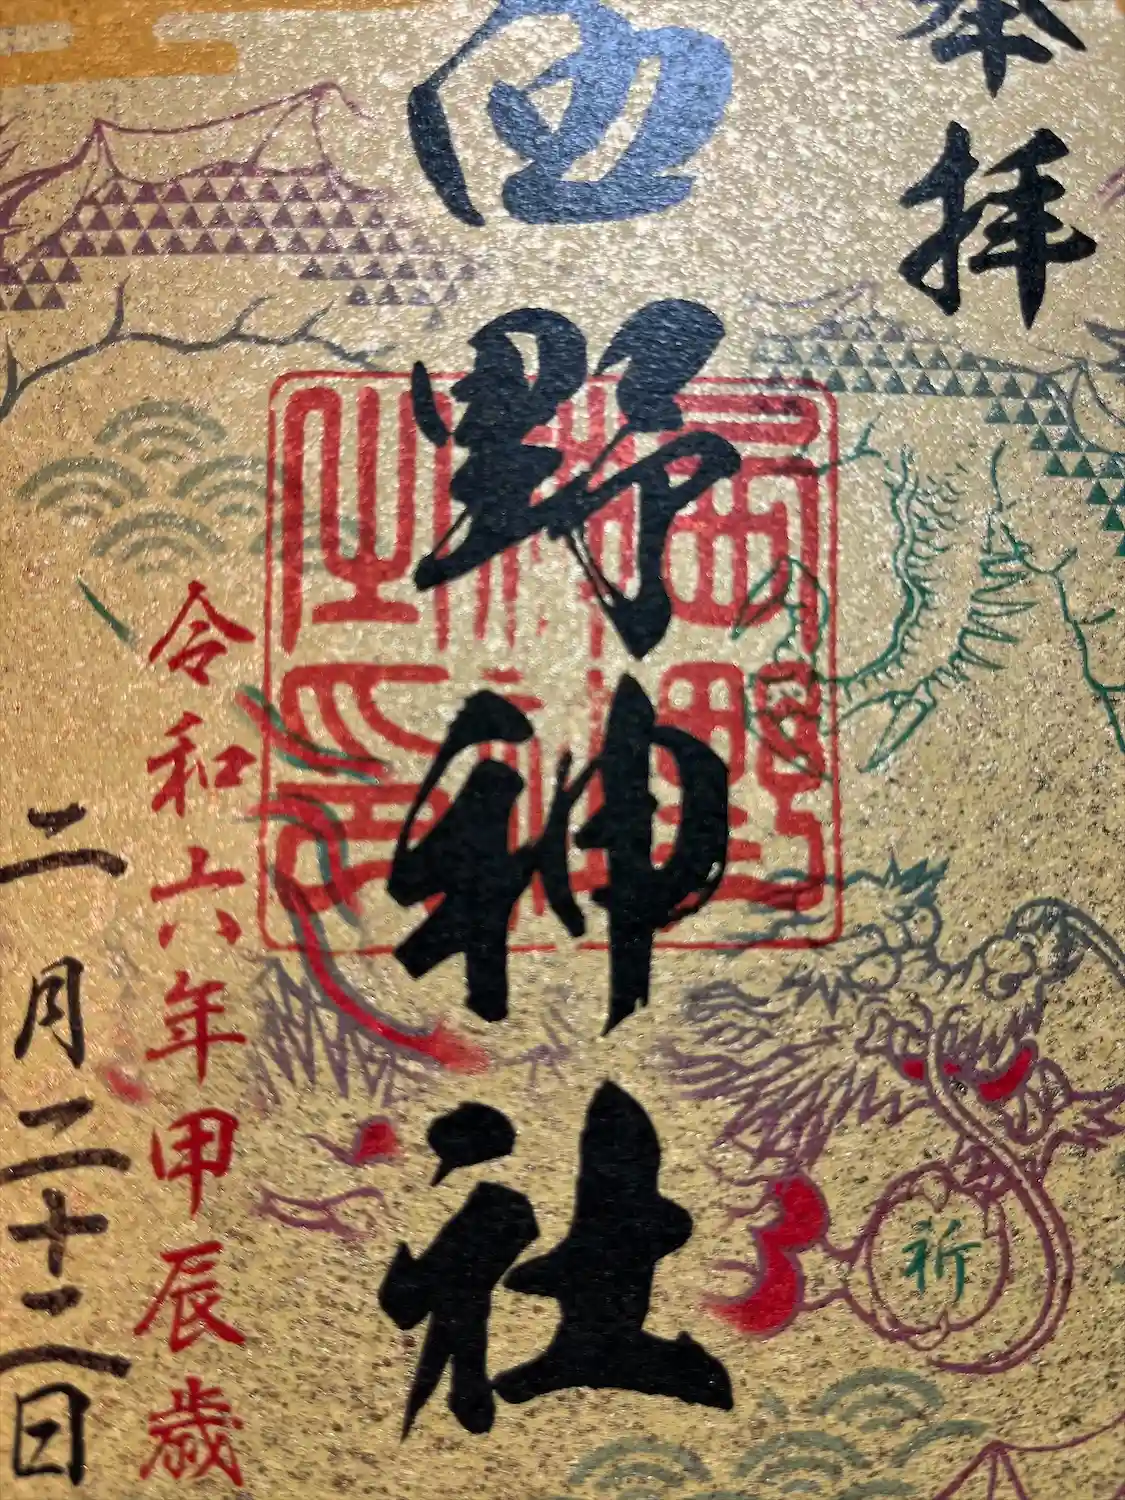 奉拝
西野神社
西野神社之印
祈
令和六年甲辰歳
二月二十二日